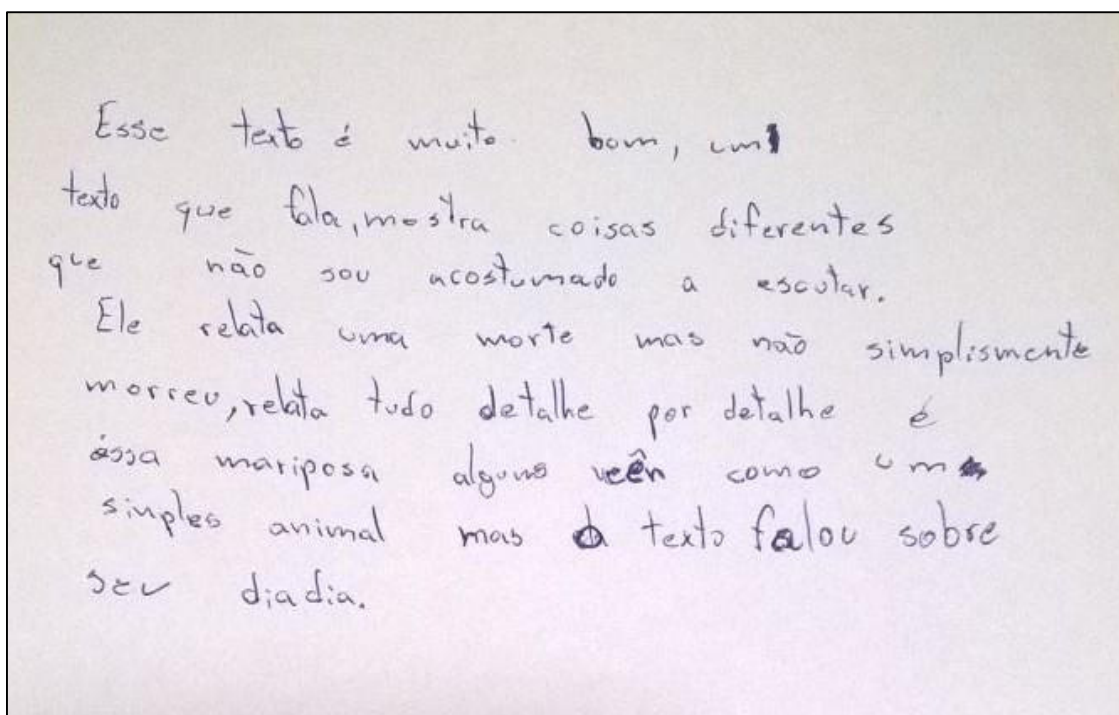 Esse texto é muito bom, um
texto que fala, mostra coisas diferentes
que não sou acostumado a escutar.
Ele relata uma morte mas não simplismente
morreu, relata tudo detalhe por detalhe é
éssa mariposa alguns veên como um
simples animal mas o texto falou sobre
seu diadia.